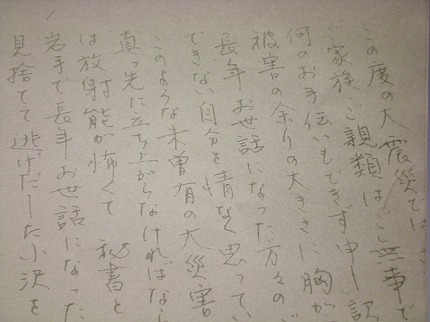 この度の大震災では
ご家族、ご親類はご無事で
何のお手伝いもできず申し訳
被害の余りの大きさに胸が
長年お世話になった方々の
できない自分を情なく思ってい
このような未曽有の大災害
真っ先に立ち上がらなければなら
は放射能が怖くて秘書と
岩手で長年お世話になった
見捨てて逃げだした小沢を